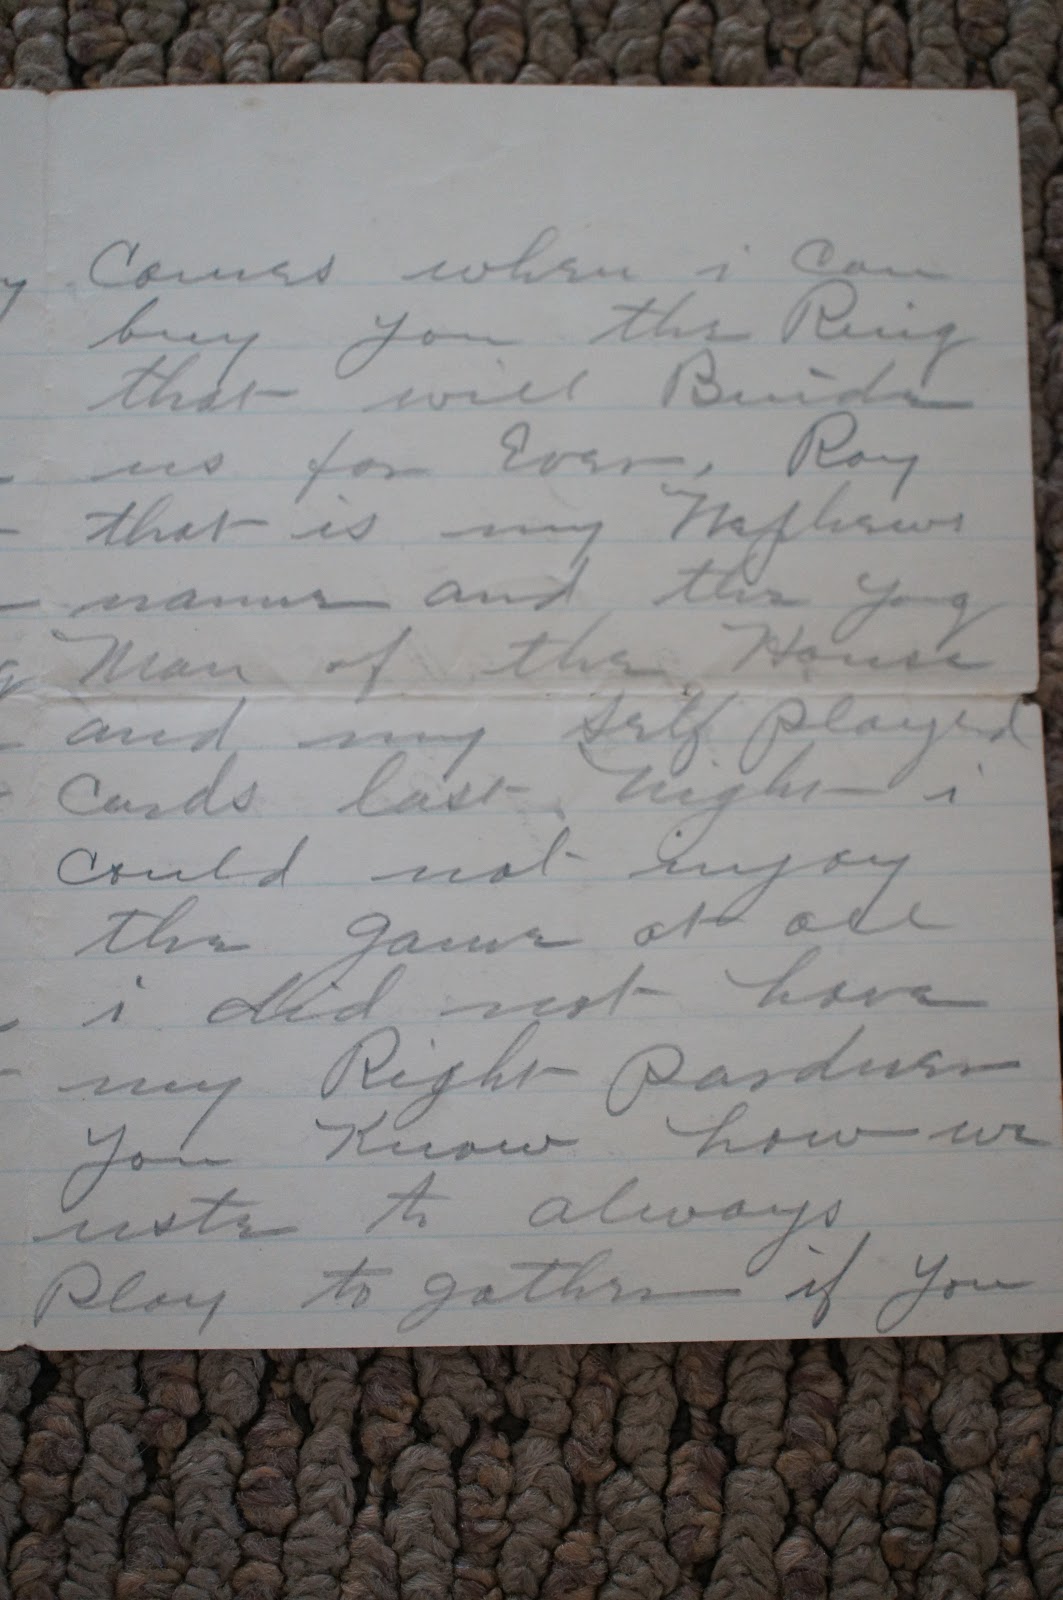 Comes when i Can
buy you the Ring
that will Binde
us for Ever, Roy
that is my Nephews
name and the yong
Man of the House
and my Self played
Cards last Night i
Could not injoy
the game at all
i did not have
my Right pardner
You Know how we
uste to always
Play to gather if you